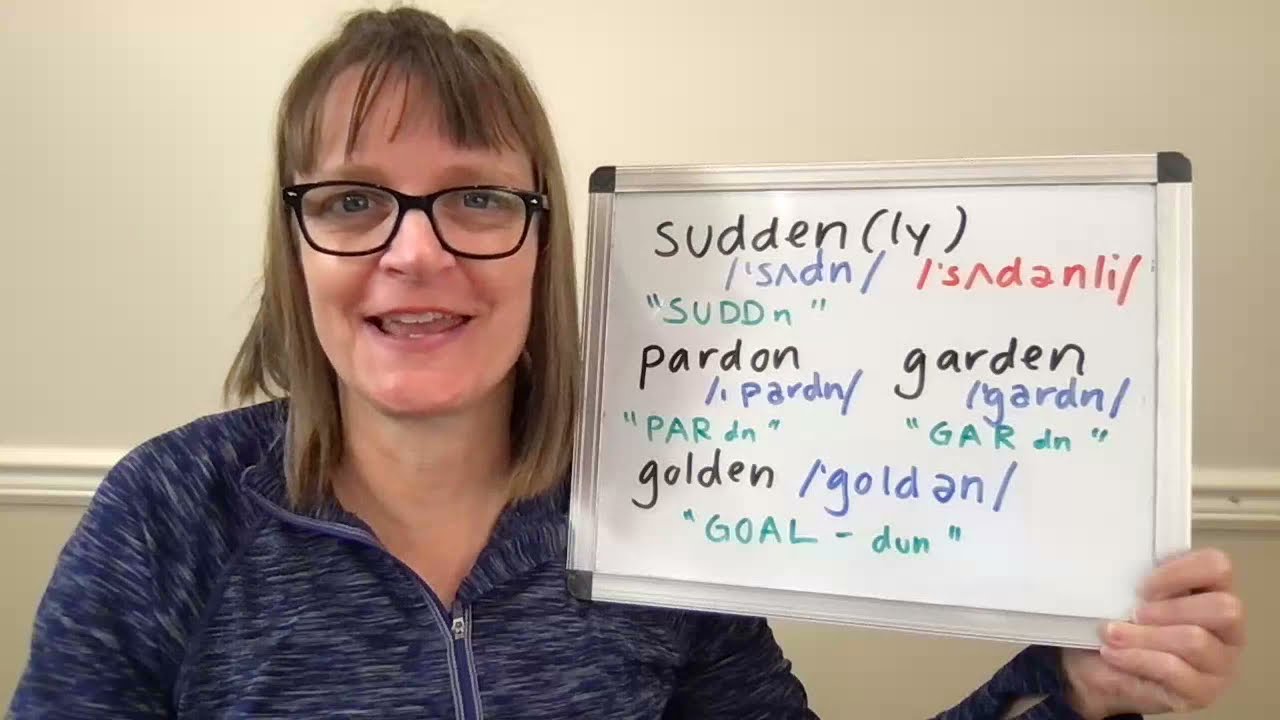 sudden(ly)
/ˈsʌdn/ /ˈsʌdənli/
"SUDDn"
pardon garden
/ˈpərdn/ /ˈgərdn/
"PAR dn" "GAR dn"
golden /ˈgoldən/
"GOAL - dun"